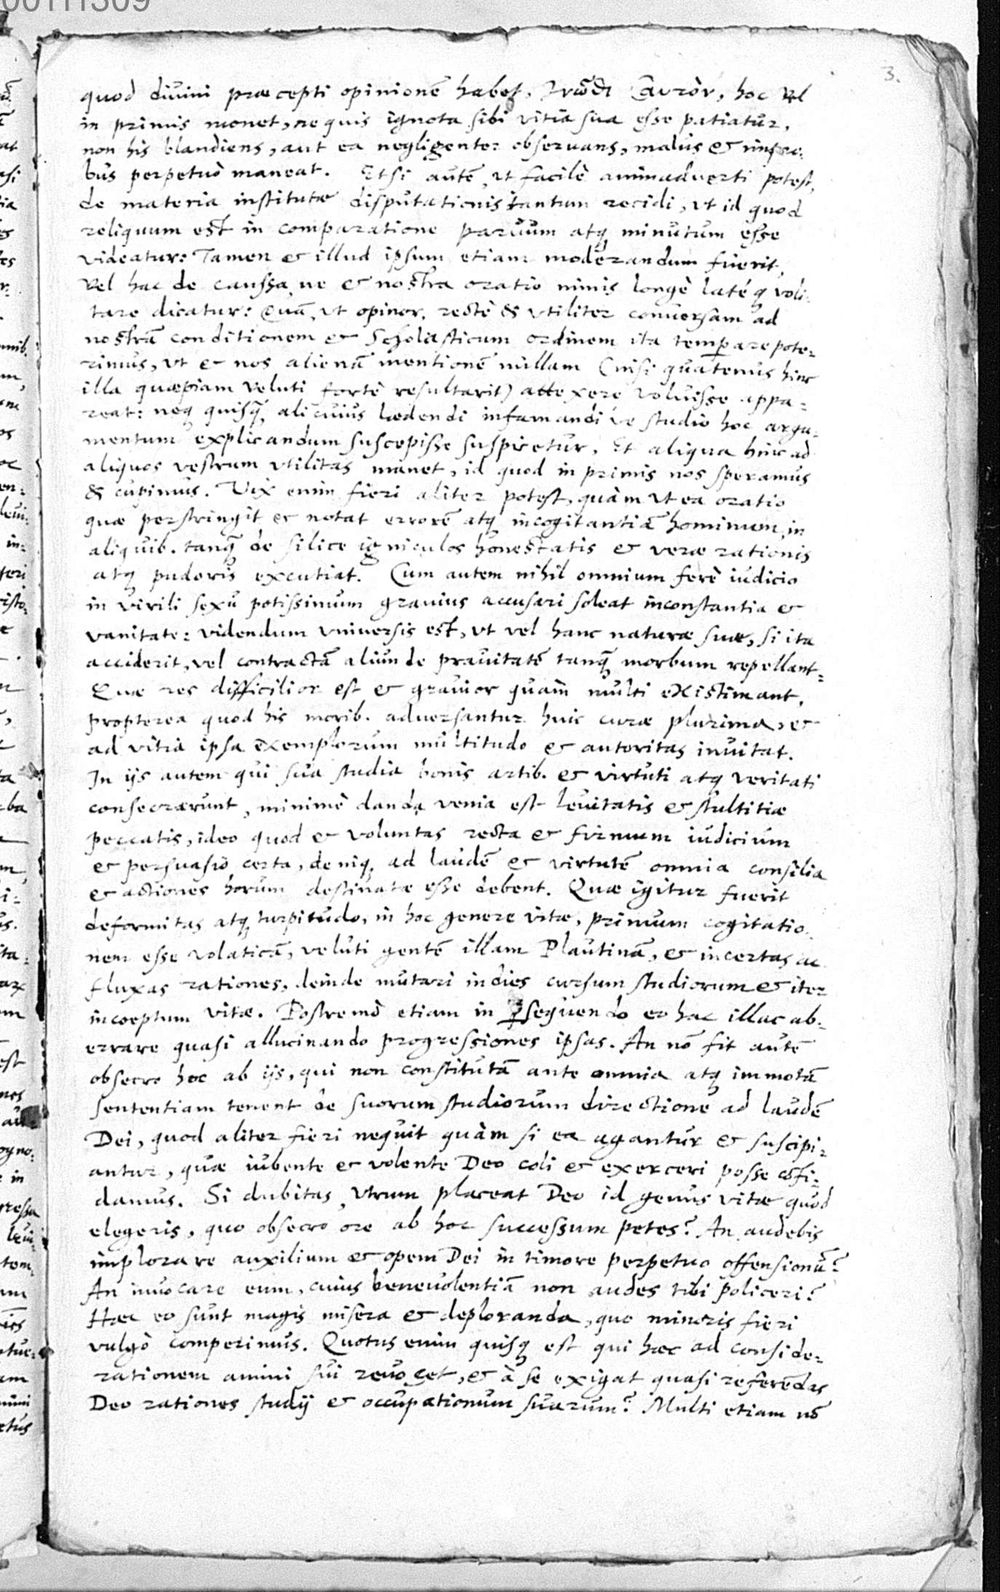 00111309
3.
quod divini præcepti opinionē habet, γνῶθι σαυτόν, hoc vel
in primis monet, ne quis ignota sibi vitia sua esse patiatur,
non his blandiens, aut ea negligenter observans, malus et impro-
bus perpetuò maneat. Etsi autē, ut facilè animadverti potest,
de materia institutæ disputationis tantum recidi, ut id quod
reliquum est in comparatione parvum atq minutum esse
videatur: Tamen et illud ipsum etiam moderandum fuerit,
Vel hac de caussa, ne et nostra oratio nimis longè latéq voli-
tare dicatur: Quā, ut opinor, rectè & utiliter conversam ad
nostrā conditionem et Scholasticum ordinem ita temperare pote-
rimus, ut et nos alienā mentionē nullam (nisi quatenus hinc
illa quæpiam veluti fortè resultarit) attexere voluisse appa-
reat: neq quisq̄ alicuius lædendi infamandi ve studio hoc argu-
mentum explicandum suscepisse suspicetur, Et aliqua hinc ad
aliquos vestrum utilitas manet, id quod in primis nos speramus
& cupimus. Vix enim fieri aliter potest, quàm ut ea oratio
quæ perstringit et notat errorē atq incogitantiā hominum, in
aliquib. tanq̄ de silice igniculos honestatis et veræ rationis
atq pudoris excutiat. Cum autem nihil omnium ferè iudicio
in virili sexu potissimum gravius accusari soleat inconstantia et
vanitate: videndum universis est, ut vel hanc naturæ suæ, si ita
acciderit, vel contractā aliunde pravitatē tanq̄ morbum repellant.
Quæ res difficilior est et gravior quàm multi existimant,
propterea quod his morib. adversantur huic curæ plurima, et
ad vitia ipsa exemplorum multitudo et autoritas invitat.
In ijs autem qui sua studia bonis artib. et virtuti atq veritati
consecrarunt, minimè danda venia est levitatis et stultitiæ
peccatis, ideo quod et voluntas recta et firmum iudicium
et persuasio certa, deniq ad laudē et virtutē omnia consilia
et actiones horum destinatæ esse debent. Quæ igitur fuerit
deformitas atq turpitudo, in hoc genere vitæ, primum cogitatio-
nem esse volaticā, veluti gentē illam Plautinā, et incertas ac
fluxas rationes, deinde mutari indies cursum studiorum et iter
inceptum vitæ. Postremò etiam in persequendo eo hac illac ab-
errare quasi allucinando progressiones ipsas. An nō fit autē
obsecro hoc ab ijs, qui non constitutā ante omnia atq immotā
sententiam tenent de suorum studiorum directione ad laudē
Dei, quod aliter fieri nequit quàm si ea agantur et suscipi-
antur, quæ iubente et volente Deo coli et exerceri posse cōfi-
damus. Si dubitas utrum placeat Deo id genus vitæ quod
elegeris, quo obsecro ore ab hoc successum petes? An audebis
implorare auxilium et opem Dei in timore perpetuo offensionū?
An invocare eum, cuius benevolentiā non audes tibi policeri?
Hæc eo sunt magis misera et deploranda, quo minoris fieri
vulgò comperimus. Quotus enim quisq est qui hæc ad conside-
rationem animi sui revocet, et à se exigat quasi referēdas
Deo rationes studij et occupationum suarum? Multi etiam nō